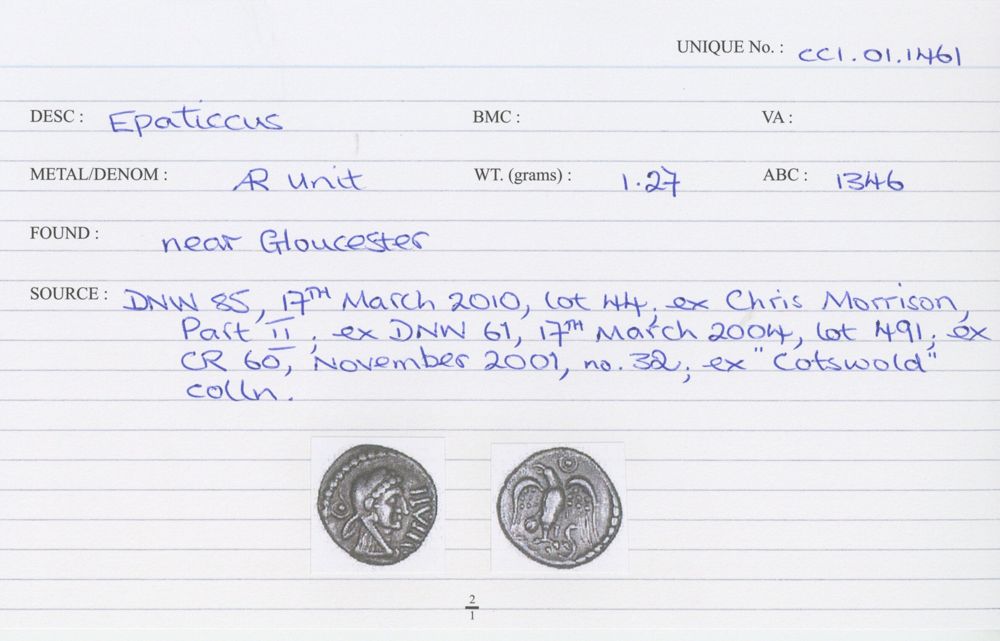 UNIQUE No. : CCI.01.1461
DESC : Epaticcus BMC : VA :
METAL/DENOM : AR Unit WT. (grams) : 1.27 ABC : 1346
FOUND : near Gloucester
SOURCE : DNW 85, 17TH March 2010, lot 44; ex Chris Morrison,
Part II; ex DNW 61, 17TH March 2004, lot 491; ex
CR 60, November 2001, no. 32; ex "Cotswold"
colln.
2
1